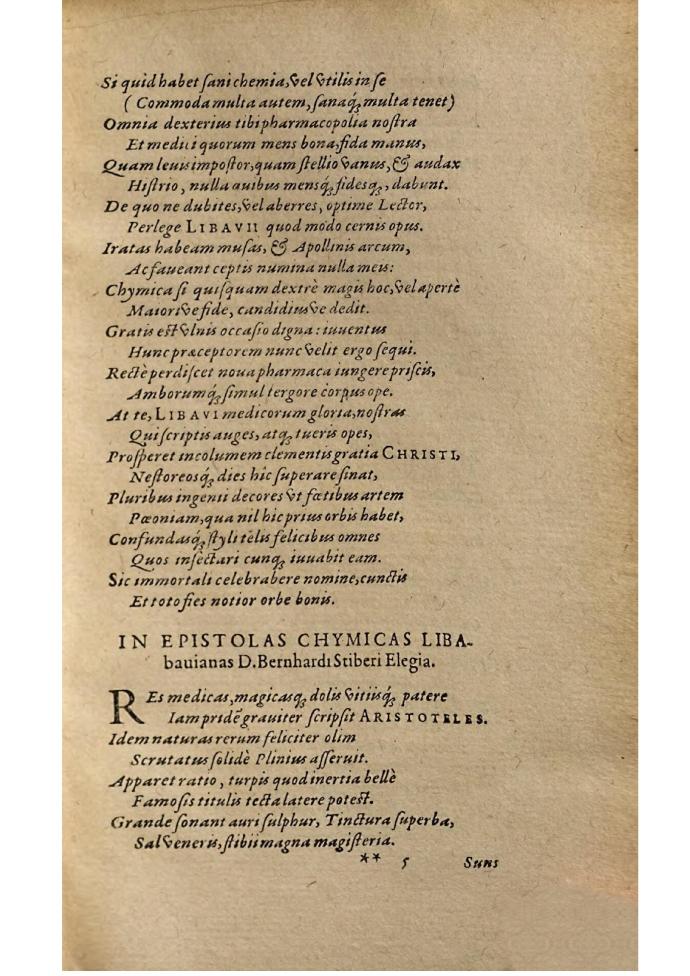 Si quid habet sani chemia, vel vtilis in se
( Commoda multa autem, sanaq́; multa tenet)
Omnia dexterius tibi pharmacopolia nostra
Et medici quorum mens bona, fida manus,
Quam leuis impostor, quam stellio vanus, & audax
Histrio, nulla quibus mensq́; fidesq́;, dabunt.
De quo ne dubites, vel aberres, optime Lector,
Perlege LIBAVII quod modo cernis opus.
Iratas habeam musas, & Apollinis arcum,
Ac faueant cęptis numina nulla meis:
Chymica si quisquam dextrè magis hoc, vel apertè
Maiori ve fide, candidius ve dedit.
Gratis est vlnis occasio digna: iuuentus
Hunc præceptorem nunc velit ergo sequi.
Rectè perdiscet noua pharmaca iungere priscis,
Amborumq́; simul tergore corpus ope.
At te, LIBAVI medicorum gloria, nostras
Qui scriptis auges, atq; tueris opes,
Prosperet incolumem clementis gratia CHRISTI,
Nestoreosq́; dies hic superare sinat,
Pluribus ingenti decores vt fœtibus artem
Pæoniam, qua nil hic prius orbis habet,
Confundasq́; styli telis felicibus omnes
Quos insectari cunq; iuuabit eam.
Sic immortali celebrabere nomine, cunctis
Et toto fies notior orbe bonis.
IN EPISTOLAS CHYMICAS LIBA-
bauianas D. Bernhardi Stiberi Elegia.
REs medicas, magicasq; dolis vitiisq́; patere
Iam pridē grauiter scripsit ARISTOTELES.
Idem naturas rerum feliciter olim
Scrutatus solidè Plinius asseruit.
Apparet ratio, turpis quod inertia bellè
Famosis titulis tecta latere potest.
Grande sonant auri sulphur, Tinctura superba,
Sal veneris, stibii magna magisteria.
** 5 Suns